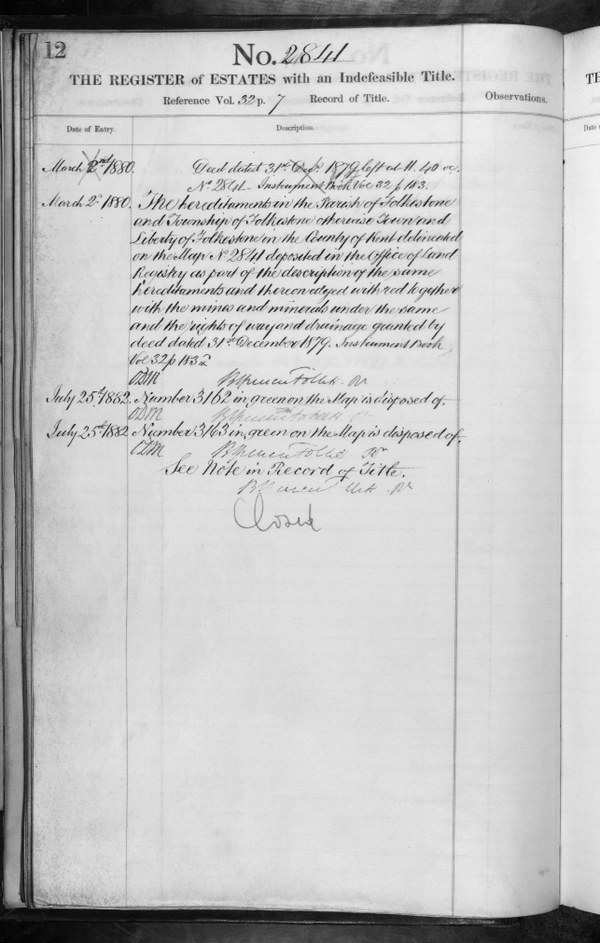 12
No. 2841
THE REGISTER of ESTATES with an Indefeasible Title.
Reference Vol. 32 p. 7 Record of Title.
Observations.
Date of Entry.
Description.
March 2nd 1880. Deed dated 31st Decr. 1879 left at 11.40
No 2841 - Instrument Book Vol 32 p 183.
March 2d 1880. The hereditaments in the Parish of Folkestone
and Township of Folkestone otherwise Town and
Liberty of Folkestone in the County of Kent delineated
on the Map No 2841 deposited in the Office of Land
Registry as part of the description of the same
hereditaments and thereon edged with red together
with the mines and minerals under the same
and the rights of way and drainage granted by
deed dated 31st December 1879. Instrument Book
Vol 32 p 183
July 25th 1882. Number 3162 in green on the Map is disposed of.
July 25th 1882. Number 3163 in green on the Map is disposed of.
See Note in Record of Title.
Closed
TH
Date